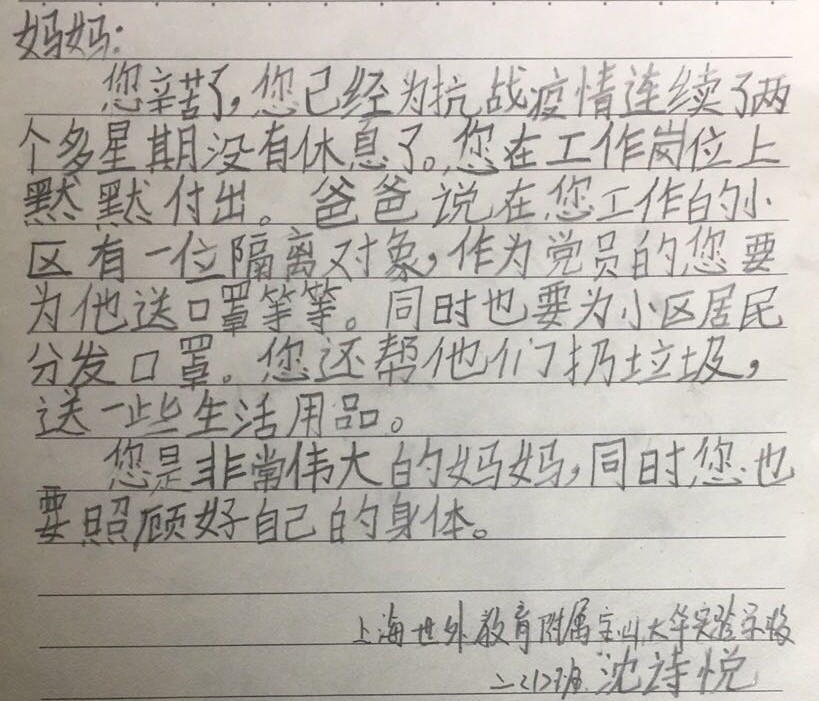 妈妈:
您辛苦了,您已经为抗战疫情连续了两
个多星期没有休息了。您在工作岗位上
默默付出。爸爸说在您工作的小
区有一位隔离对象,作为党员的您要
为他送口罩等等。同时也要为小区居民
分发口罩。您还帮他们扔垃圾,
送一些生活用品。
您是非常伟大的妈妈,同时您也
要照顾好自己的身体。
上海世外教育附属宝山大华实验学校
二(2)班 沈诗悦